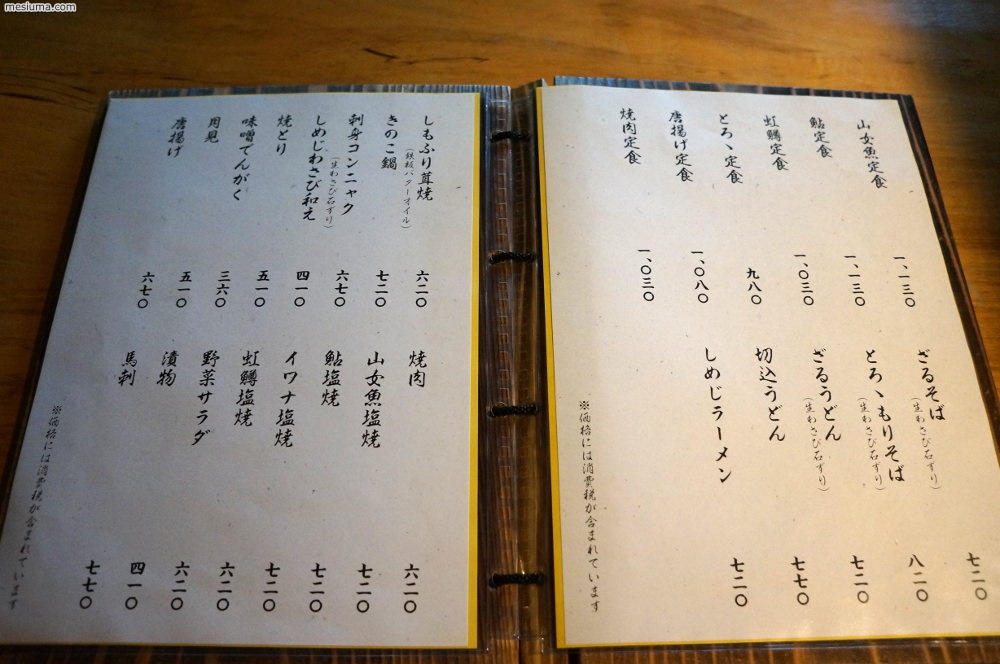 mesiuma.com
山女魚定食 一、一三〇
鮎定食 一、一三〇
虹鱒定食 一、〇三〇
とろゝ定食 九八〇
唐揚げ定食 一、〇八〇
焼肉定食 一、〇三〇
ざるそば 七二〇
(生わさび石ずり)
とろゝもりそば 八二〇
(生わさび石ずり)
ざるうどん 七二〇
(生わさび石ずり)
切込うどん 七七〇
しめじラーメン 七二〇
※価格には消費税が含まれています
しもふり茸焼 六二〇
(鉄板バターオイル)
きのこ鍋 七二〇
刺身コンニャク 六七〇
(生わさび石ずり)
しめじわさび和え 四一〇
焼とり 五一〇
味噌でんがく 三六〇
月見 五一〇
唐揚げ 六七〇
焼肉 六二〇
山女魚塩焼 七二〇
鮎塩焼 七二〇
イワナ塩焼 七二〇
虹鱒塩焼 六二〇
野菜サラダ 六二〇
漬物 四一〇
馬刺 七七〇
※価格には消費税が含まれています